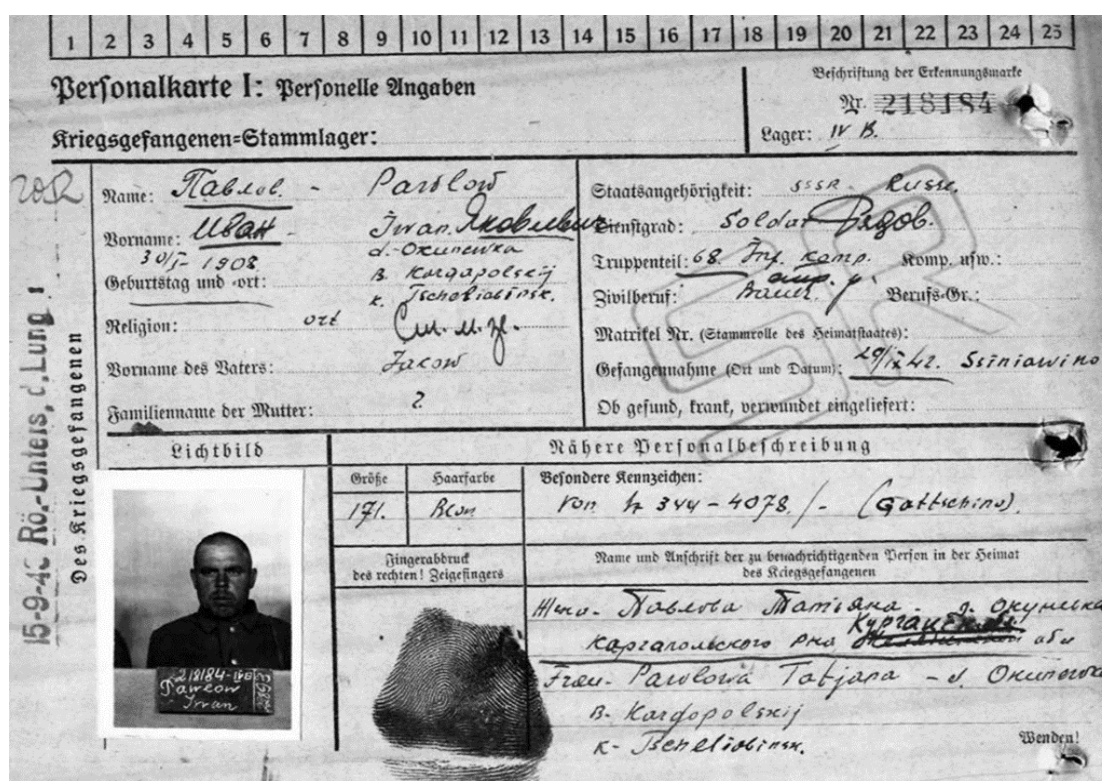 1 2 3 4 5 6 7 8 9 10 11 12 13 14 15 16 17 18 19 20 21 22 23 24 25
Personalkarte I: Personelle Angaben
Kriegsgefangenen=Stammlager:
Beschriftung der Erkennungsmarke
Nr. 218184
Lager: IV B.
Des Kriegsgefangenen
15-9-42 Rö.-Unters. d. Lung
Name: Павлов. - Pawlow
Vorname: Иван Iwan. Яковлевич
30/I- 1908 d.- Okunewka
Geburtstag und -ort: B. Kargapolskij
K. Tscheliabinsk.
Religion: ort
Vorname des Vaters: Jakow
Familienname der Mutter: ?
Staatsangehörigkeit: SSSR Russe.
Dienstgrad: Soldat Рядов.
Truppenteil: 68 Inf. Komp. Komp. usw.:
Zivilberuf: Bauer. Berufs-Gr.:
Matrikel Nr. (Stammrolle des Heimatstaates):
Gefangennahme (Ort und Datum): 29/IX 42. Ssiniawino
Ob gesund, krank, verwundet eingeliefert:
SR
Lichtbild
Nähere Personalbeschreibung
Größe Haarfarbe Besondere Kennzeichen:
171. Von 344-4078./- (Gattschino).
Fingerabdruck
des rechten! Zeigefingers
Name und Anschrift der zu benachrichtigenden Person in der Heimat
des Kriegsgefangenen
Жена- Павлова Татьяна - д. Окуневка
Каргапольского р-на Курган обл
Frau- Pawlowa Tatjana - d. Okunewka
B- Kargopolskij
K- Tscheliabinsk.
218184-IVB
Pawlow
Iwan
Wenden!